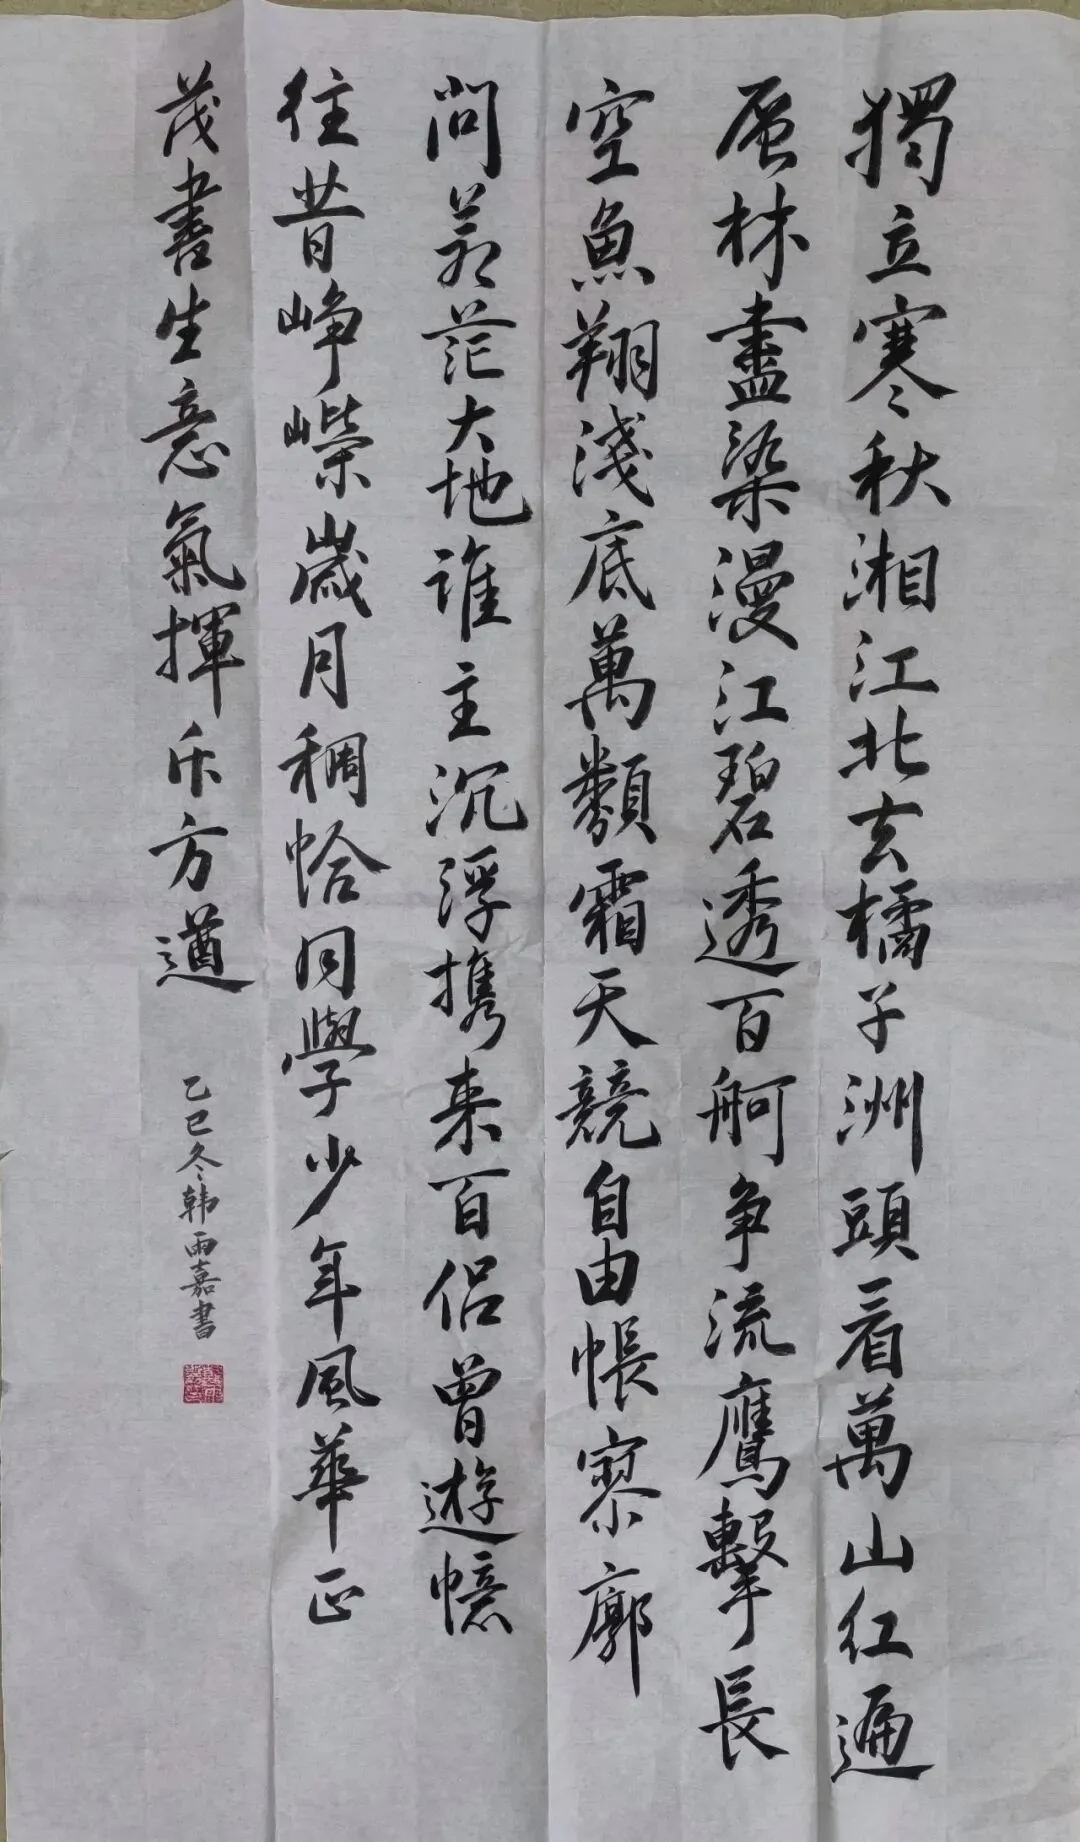 獨立寒秋湘江北去橘子洲頭看萬山紅遍
層林盡染漫江碧透百舸争流鷹擊長
空魚翔淺底萬類霜天競自由悵寥廓
問蒼茫大地誰主沉浮携来百侣曾遊憶
往昔崢嶸歲月稠恰同學少年風華正
茂書生意氣揮斥方遒
乙巳冬韩雨嘉書